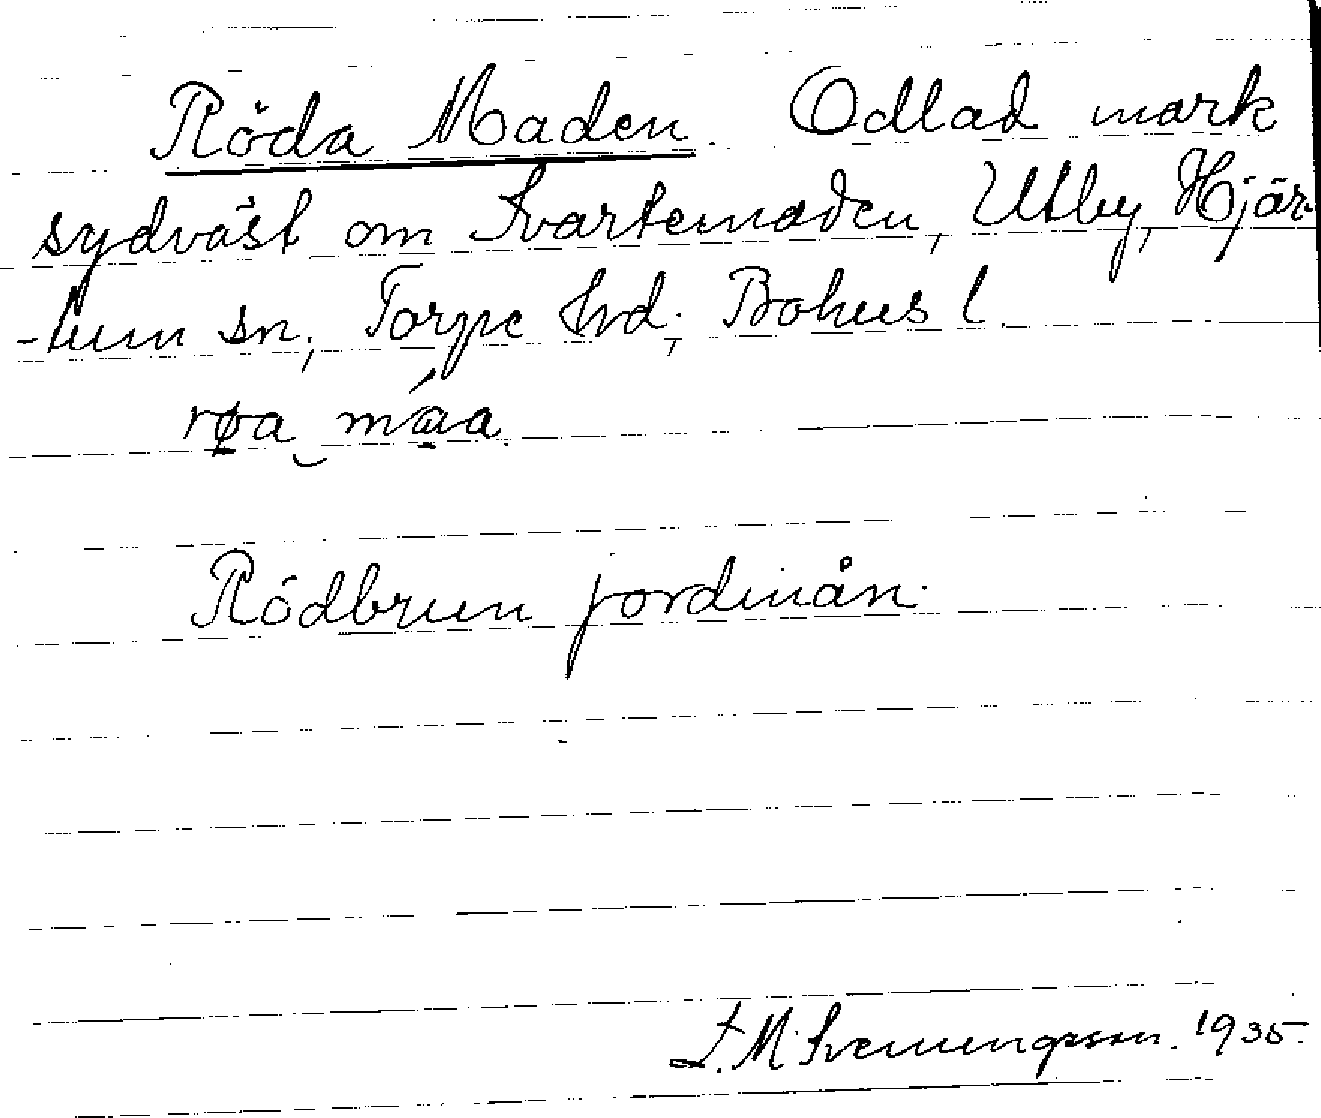 Röda Maden. Odlad mark
sydväst om Svartemaden, Utby, Hjär-
-tum sn, Torpe hrd, Bohus l
røa má̲a
Rödbrun jordmån.
L. M. Svenungsson. 1935.